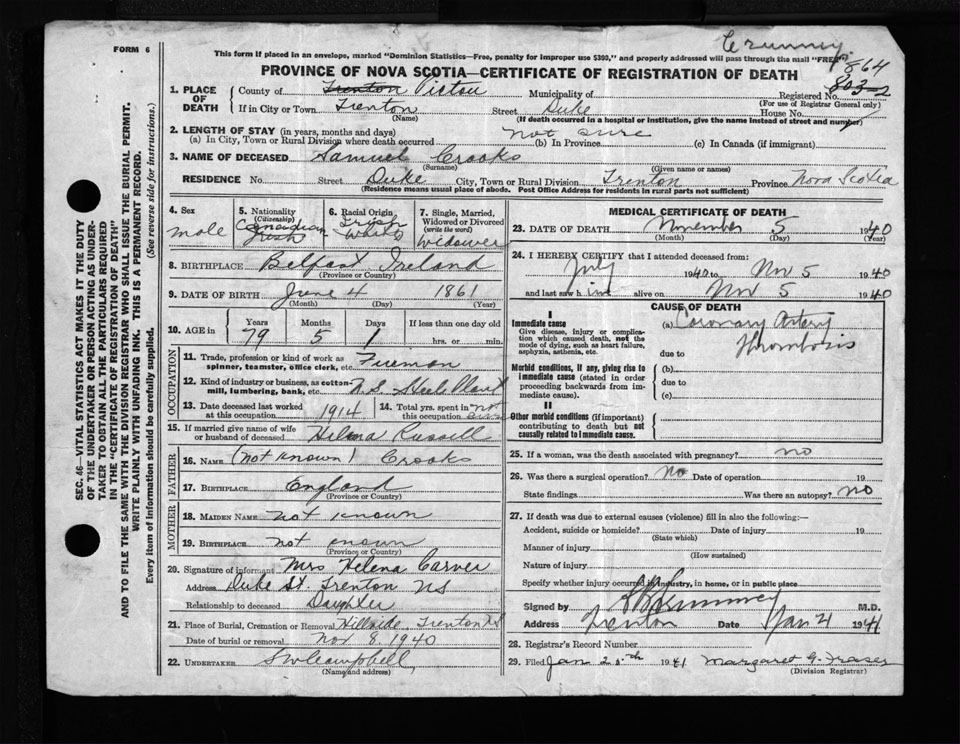 FORM 6
This form if placed in an envelope, marked "Dominion Statistics—Free, penalty for improper use $300," and properly addressed will pass through the mail "FREE"
PROVINCE OF NOVA SCOTIA—CERTIFICATE OF REGISTRATION OF DEATH
864
Registered No. 803-2
(For use of Registrar General only)
1. PLACE OF DEATH
County of Trenton Pictou Municipality of
If in City or Town Trenton Street Duke House No.
(Name) (If death occurred in a hospital or institution, give the name instead of street and number)
2. LENGTH OF STAY (in years, months and days) not sure
(a) In City, Town or Rural Division where death occurred (b) In Province (c) In Canada (if immigrant)
3. NAME OF DECEASED Samuel Crooks
(Surname) (Given name or names)
RESIDENCE No. Street Duke City, Town or Rural Division Trenton Province Nova Scotia
(Residence means usual place of abode. Post Office Address for residents in rural parts not sufficient)
4. Sex male
5. Nationality (Citizenship) Canadian Irish
6. Racial Origin Irish White
7. Single, Married, Widowed or Divorced (write the word) Widower
8. BIRTHPLACE Belfast Ireland
(Province or Country)
9. DATE OF BIRTH June 4 1861
(Month) (Day) (Year)
10. AGE in Years 79 Months 5 Days 1 If less than one day old hrs. or min.
OCCUPATION
11. Trade, profession or kind of work as spinner, teamster, office clerk, etc. Fireman
12. Kind of industry or business, as cotton-mill, lumbering, bank, etc. N.S. Steel Plant
13. Date deceased last worked at this occupation 1914
14. Total yrs. spent in this occupation not
15. If married give name of wife or husband of deceased Helena Russell
FATHER
16. NAME (not known) Crooks
17. BIRTHPLACE England
(Province or Country)
MOTHER
18. MAIDEN NAME not known
19. BIRTHPLACE not known
(Province or Country)
20. Signature of informant Mrs Helena Carver
Address Duke St. Trenton NS
Relationship to deceased Daughter
21. Place of Burial, Cremation or Removal Hillside, Trenton NS
Date of burial or removal Nov 8. 1940
22. UNDERTAKER
(Name and address)
MEDICAL CERTIFICATE OF DEATH
23. DATE OF DEATH November 5 1940
(Month) (Day) (Year)
24. I HEREBY CERTIFY that I attended deceased from:
July 1940 to Nov 5 1940
and last saw him alive on Nov 5 1940
CAUSE OF DEATH
I
Immediate cause
Give disease, injury or complication which caused death, not the mode of dying, such as heart failure, asphyxia, asthenia, etc.
(a) Coronary Artery Thrombosis
due to
Morbid conditions, if any, giving rise to immediate cause (stated in order proceeding backwards from immediate cause).
(b)
due to
(c)
II
Other morbid conditions (if important) contributing to death but not causally related to immediate cause.
25. If a woman, was the death associated with pregnancy? no
26. Was there a surgical operation? no Date of operation 19
State findings Was there an autopsy? no
27. If death was due to external causes (violence) fill in also the following:—
Accident, suicide or homicide? Date of injury 19
(State which)
Manner of injury
(How sustained)
Nature of injury
Specify whether injury occurred in industry, in home, or in public place
Signed by M.D.
Address Trenton Date Jan 21 1941
28. Registrar's Record Number
29. Filed Jan 25th 1941 Margaret G. Fraser
(Division Registrar)
SEC. 46—VITAL STATISTICS ACT MAKES IT THE DUTY
OF THE UNDERTAKER OR PERSON ACTING AS UNDER-
TAKER TO OBTAIN ALL THE PARTICULARS REQUIRED
IN THE "CERTIFICATE OF REGISTRATION OF DEATH"
AND TO FILE THE SAME WITH THE DIVISION REGISTRAR WHO SHALL ISSUE THE BURIAL PERMIT.
WRITE PLAINLY WITH UNFADING INK. THIS IS A PERMANENT RECORD.
Every item of information should be carefully supplied. (See reverse side for instructions.)